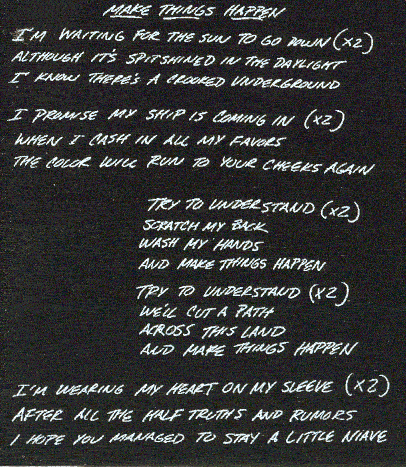 MAKE THINGS HAPPEN
I'M WAITING FOR THE SUN TO GO DOWN (X2)
ALTHOUGH IT'S SPITSHINED IN THE DAYLIGHT
I KNOW THERE'S A CROOKED UNDERGROUND
I PROMISE MY SHIP IS COMING IN (X2)
WHEN I CASH IN ALL MY FAVORS
THE COLOR WILL RUN TO YOUR CHEEKS AGAIN
TRY TO UNDERSTAND (X2)
SCRATCH MY BACK
WASH MY HANDS
AND MAKE THINGS HAPPEN
TRY TO UNDERSTAND (X2)
WE'LL CUT A PATH
ACROSS THIS LAND
AND MAKE THINGS HAPPEN
I'M WEARING MY HEART ON MY SLEEVE (X2)
AFTER ALL THE HALF TRUTH'S AND RUMORS
I HOPE YOU MANAGED TO STAY A LITTLE NIAVE